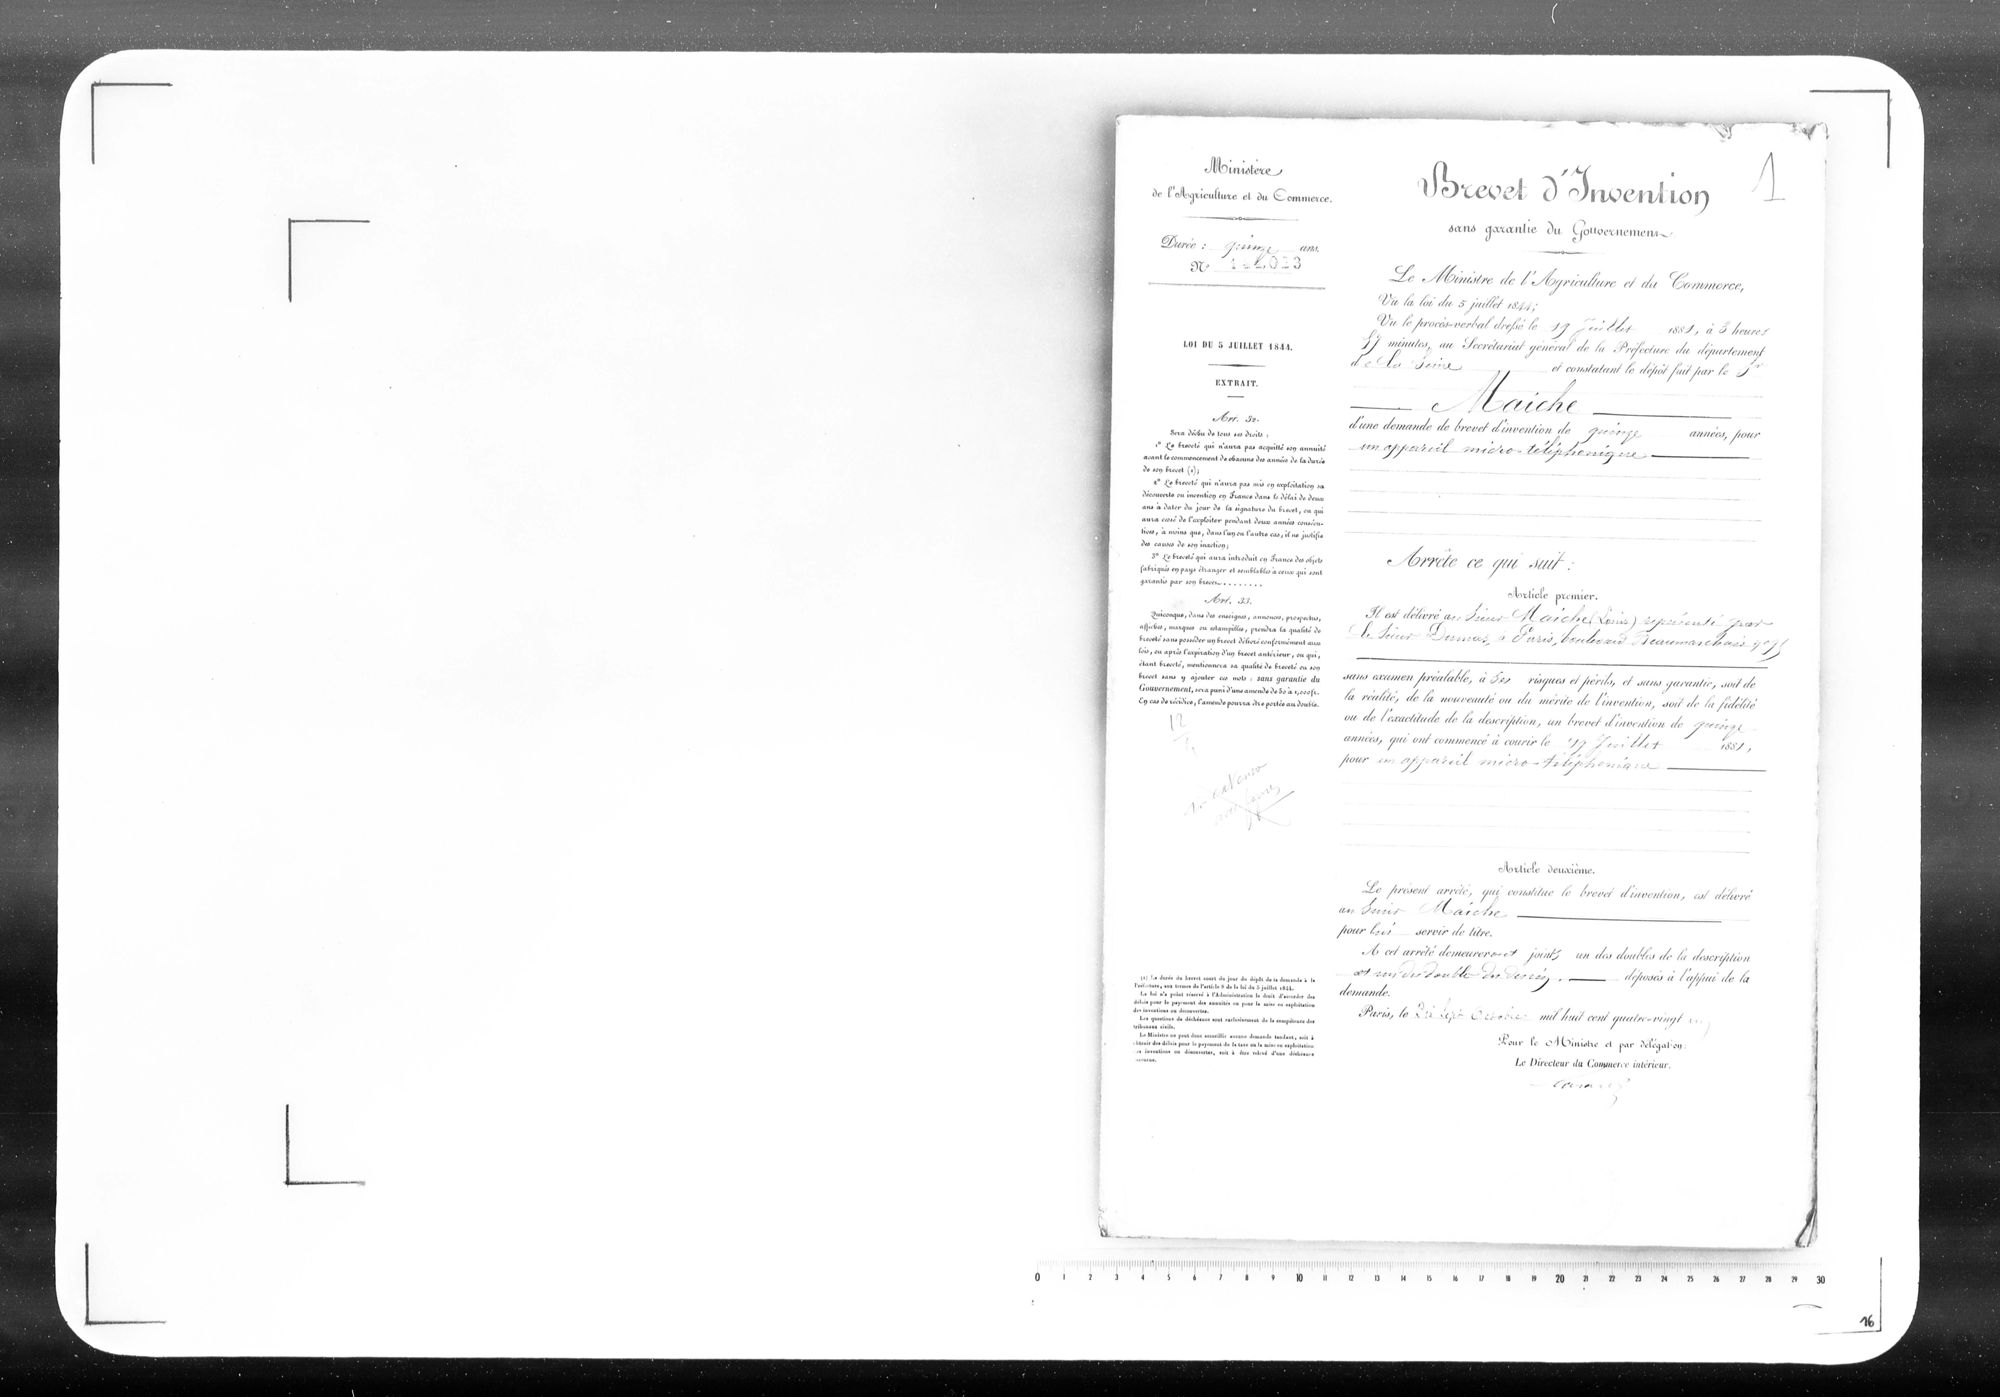 Ministère
de l'Agriculture et du Commerce.
Durée : quinze ans.
N°
LOI DU 5 JUILLET 1844.
EXTRAIT.
Art. 32.
Sera déchu de tous ses droits :
1° Le breveté qui n'aura pas acquitté son annuité
avant le commencement de chacune des années de la durée
de son brevet (1);
2° Le breveté qui n'aura pas mis en exploitation sa
découverte ou invention en France dans le délai de deux
ans à dater du jour de la signature du brevet, ou qui
aura cessé de l'exploiter pendant deux années consécu-
tives, à moins que, dans l'un ou l'autre cas, il ne justifie
des causes de son inaction;
3° Le breveté qui aura introduit en France des objets
fabriqués en pays étranger et semblables à ceux qui sont
garantis par son brevet........
Art. 33.
Quiconque, dans des enseignes, annonces, prospectus,
affiches, marques ou estampilles, prendra la qualité de
breveté sans posséder un brevet délivré conformément aux
lois, ou après l'expiration d'un brevet antérieur, ou qui,
étant breveté, mentionnera sa qualité de breveté ou son
brevet sans y ajouter ces mots : sans garantie du
Gouvernement, sera puni d'une amende de 50 à 1,000 fr.
En cas de récidive, l'amende pourra être portée au double.
12
(1) La durée du brevet court du jour du dépôt de la demande à la
Préfecture, aux termes de l'article 8 de la loi du 5 juillet 1844.
La loi n'a point réservé à l'Administration le droit d'accorder des
délais pour le payement des annuités ou pour la mise en exploitation
des inventions ou découvertes.
Les questions de déchéance sont exclusivement de la compétence des
tribunaux civils.
Le Ministre ne peut donc accueillir aucune demande tendant, soit à
obtenir des délais pour le payement de la taxe ou la mise en exploitation
des inventions ou découvertes, soit à être relevé d'une déchéance
encourue.
Brevet d'Invention
1
sans garantie du Gouvernement
Le Ministre de l'Agriculture et du Commerce,
Vu la loi du 5 juillet 1844;
Vu le procès-verbal dressé le 19 Juillet 1881, à 3 heures
minutes, au Secrétariat général de la Préfecture du département
de La Seine et constatant le dépôt fait par le Sr
Maiche
d'une demande de brevet d'invention de quinze années, pour
un appareil micro-téléphonique
Arrête ce qui suit :
Article premier.
Il est délivré au Sieur Maiche (Louis) représenté par
le Sieur Dumas, à Paris, boulevard Beaumarchais
sans examen préalable, à ses risques et périls, et sans garantie, soit de
la réalité, de la nouveauté ou du mérite de l'invention, soit de la fidélité
ou de l'exactitude de la description, un brevet d'invention de quinze
années, qui ont commencé à courir le 19 Juillet 1881,
pour un appareil micro-téléphonique
Article deuxième.
Le présent arrêté, qui constitue le brevet d'invention, est délivré
au Sieur Maiche
pour lui servir de titre.
A cet arrêté demeureront joints un des doubles de la description
et un des doubles du dessin. déposés à l'appui de la
demande.
Paris, le Dix sept Octobre mil huit cent quatre-vingt un
Pour le Ministre et par délégation:
Le Directeur du Commerce intérieur.
0 1 2 3 4 5 6 7 8 9 10 11 12 13 14 15 16 17 18 19 20 21 22 23 24 25 26 27 28 29 30
16